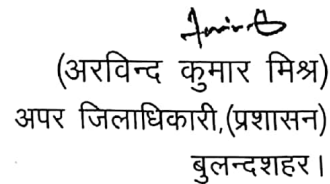 (अरविन्द कुमार मिश्र)
अपर जिलाधिकारी,(प्रशासन)
बुलन्दशहर।